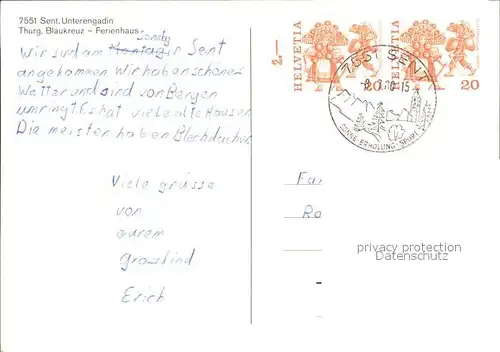 7551 Sent, Unterengadin
Thurg. Blaukreuz – Ferienhaus
Sontag
Wir sind am Montag in Sent
angekommen. Wir haben schönes
Wetter und sind von Bergen
umringt. Es hat viele alte Häuser.
Die meisten haben Blechdächer
Viele grüsse
von
eurem
Grosskind
Erich
2.—
HELVETIA
20
HELVETIA
20
7551 SENT
-15
SONNE · ERHOLUNG · SPORT
Fa
Ro
privacy protection
Datenschutz